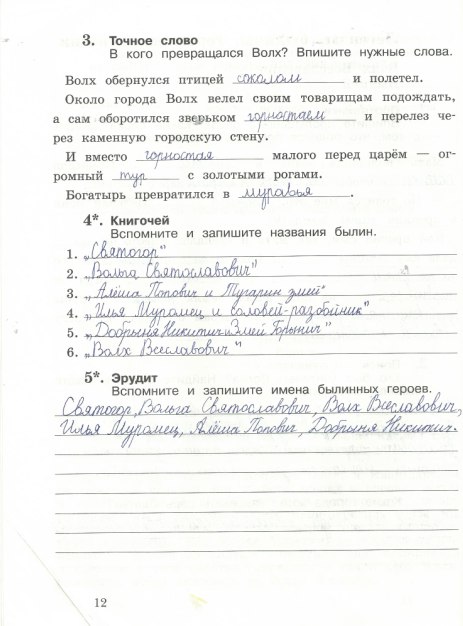 3. Точное слово
В кого превращался Волх? Впишите нужные слова.
Волх обернулся птицей соколом и полетел.
Около города Волх велел своим товарищам подождать,
а сам оборотился зверьком горностаем и перелез че-
рез каменную городскую стену.
И вместо горностая малого перед царём — ог-
ромный тур с золотыми рогами.
Богатырь превратился в муравья.
4*. Книгочей
Вспомните и запишите названия былин.
1. „Святогор"
2. „Вольга Святославович"
3. „Алёша Попович и Тугарин змей"
4. „Илья Муромец и соловей-разбойник"
5. „Добрыня Никитич и Змей Горыныч"
6. „Волх Всеславович"
5*. Эрудит
Вспомните и запишите имена былинных героев.
Святогор, Вольга Святославович, Волх Всеславович,
Илья Муромец, Алёша Попович, Добрыня Никитич.
12